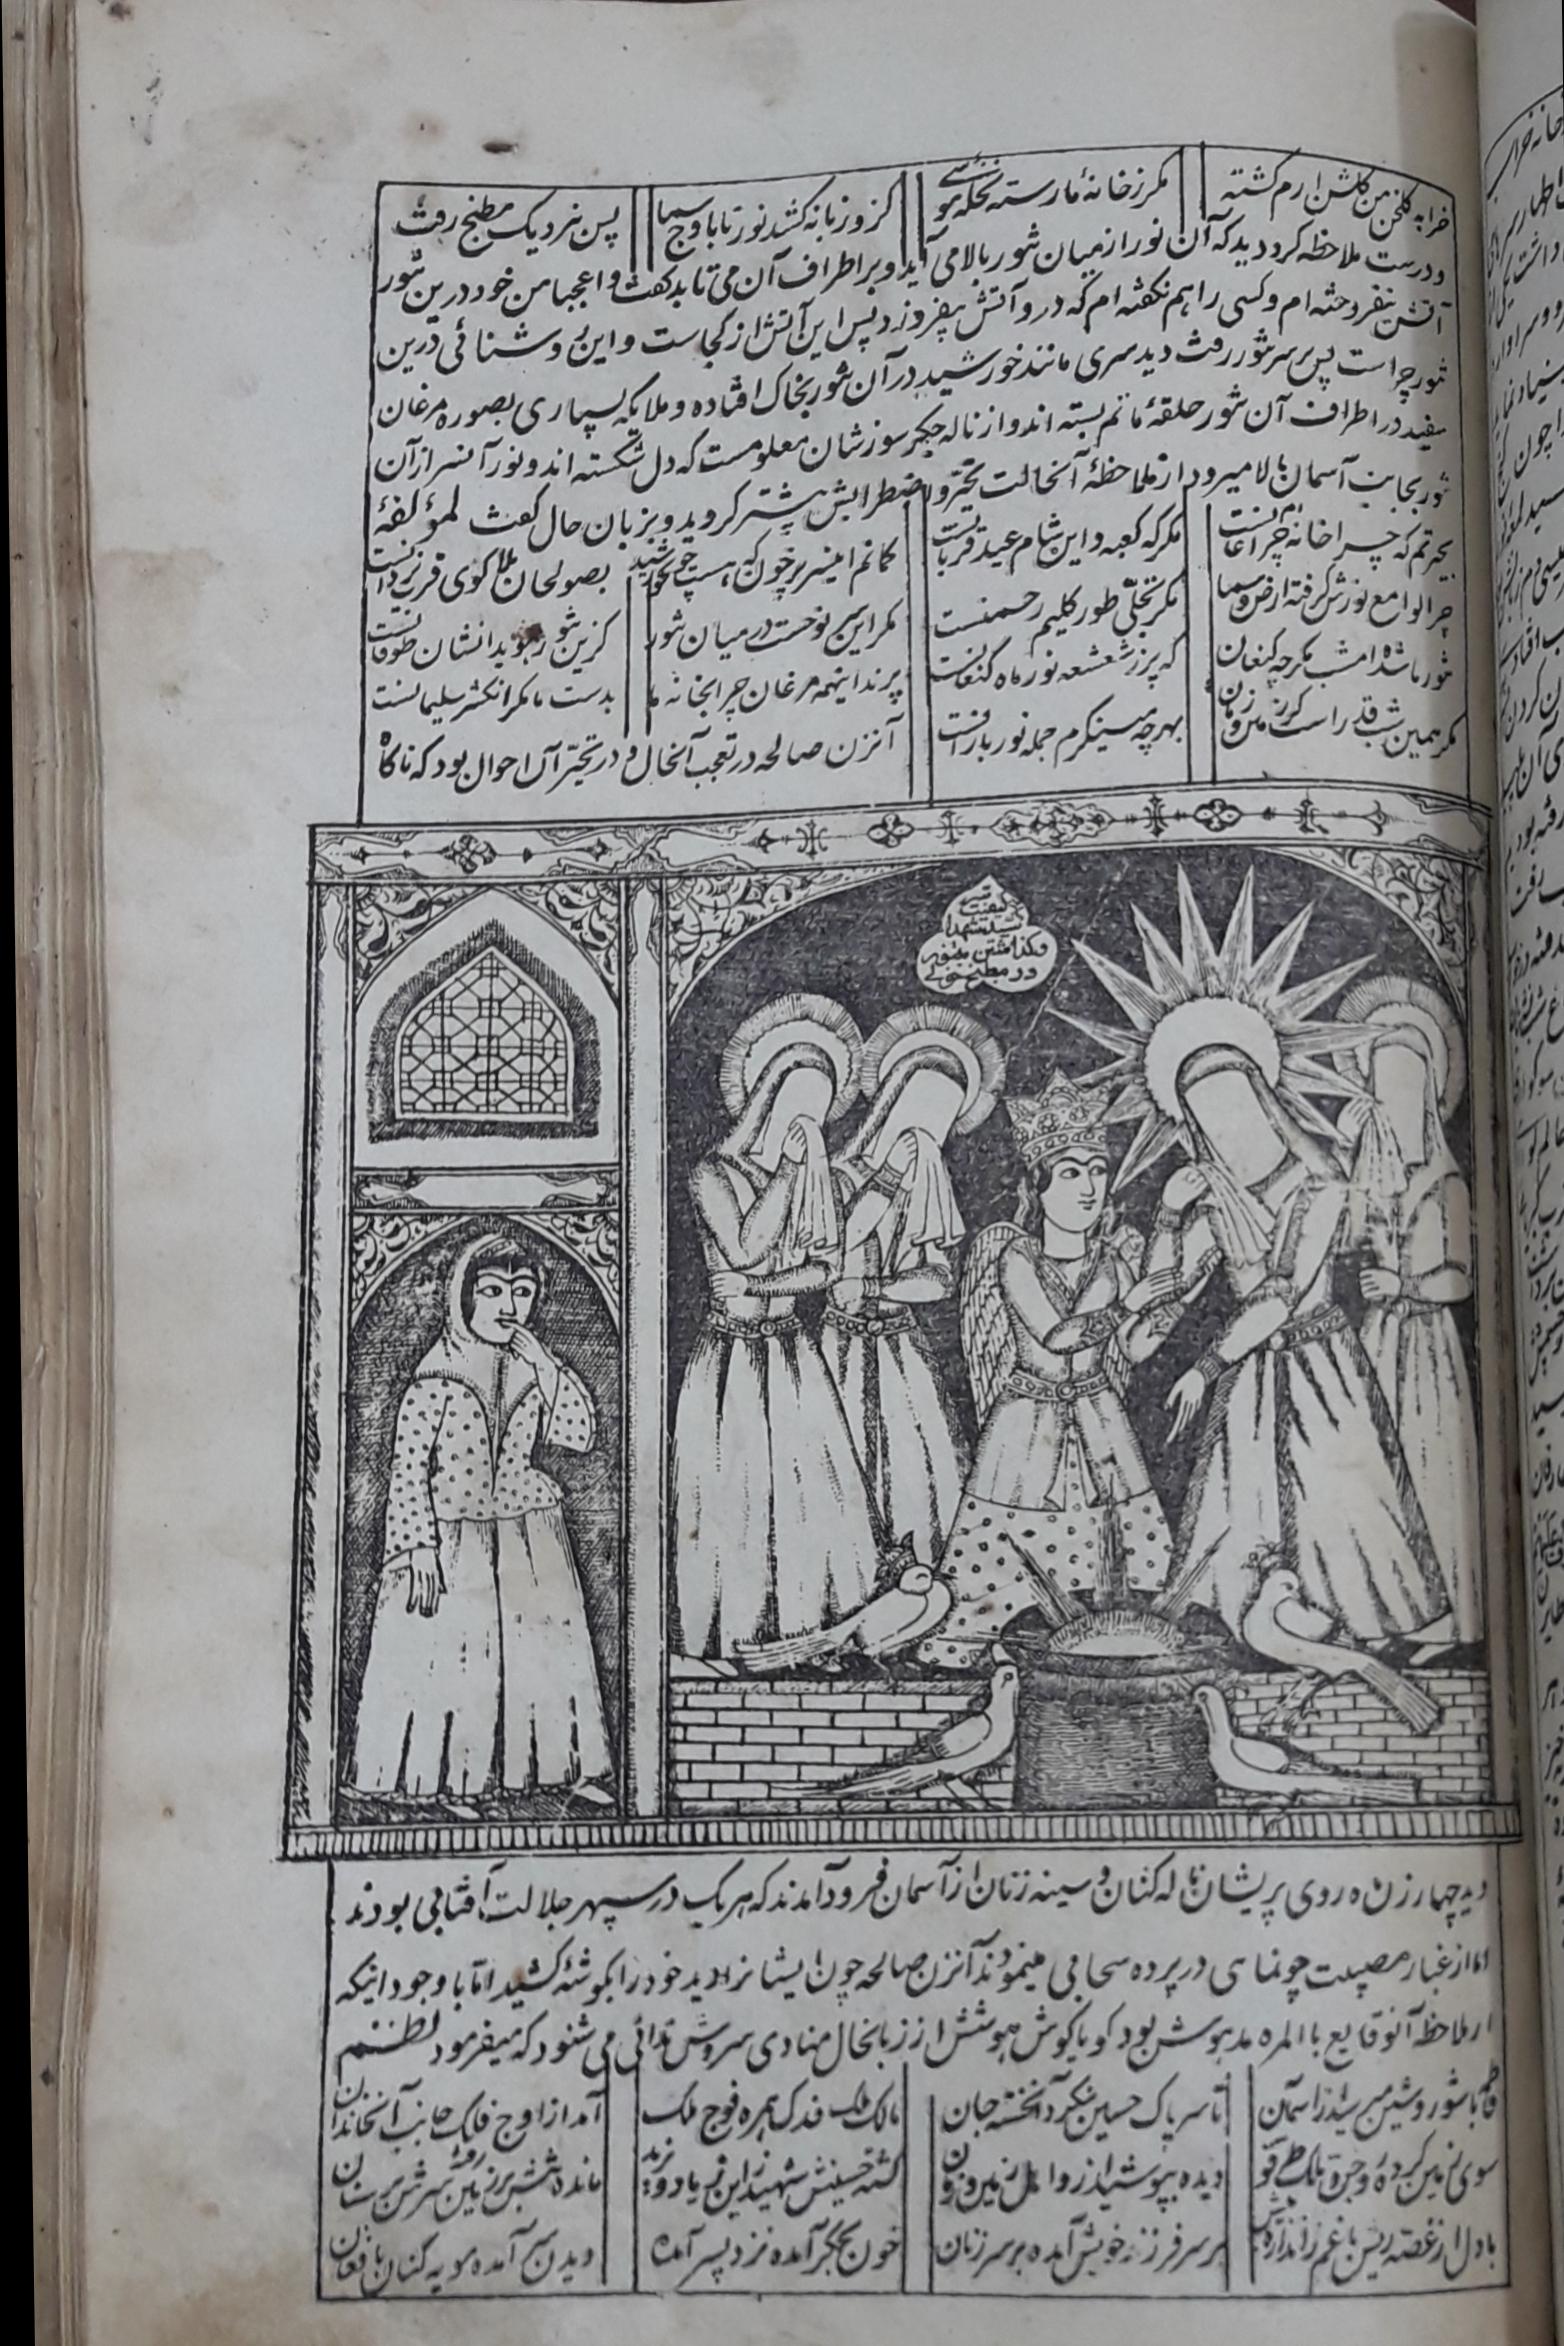 خرابه گلخن من گلشن ارم گشته مگر ز خانهٔ ما رسته نخلهٔ موسی کز و زبانه کشد نور تا باوج سما پس بنزدیک مطبخ رفت
و درست ملاحظه کرد دید که آن نور از میان تنور بالا می آید و بر اطراف آن می تابد گفت وا عجبا من خود درین تنور
آتش نیفروخته ام و کسی را هم نگفته ام که درو آتش بیفروزد پس این آتش از کجاست و این روشنائی درین
تنور چراست پس بر سر تنور رفت دید سری مانند خورشید در آن تنور بخاک افتاده و ملایکه بسیاری بصورة مرغان
سفید در اطراف آن تنور حلقهٔ ماتم بسته اند و از ناله جگر سوزشان معلومست که دل شکسته اند و نور آنسر از آن
تنور بجانب آسمان بالا میرود از ملاحظهٔ آنحالت تحیر و اضطرابش بیشتر گردید و بزبان حال گفت لمؤلفه
بحیرتم که چرا خانه ام چراغانست مگر که کعبه و این شام عید قربانست گمانم اینسر پرخون که هست چو خورشید بصولجان بلا گوی قرب یزدانست
چرا لوامع نورش گرفته ارض و سما مگر تجلی طور کلیم رحمنست مگر این سر نوحست در میان تنور کزین تنور هویدا نشان طوفانست
تنور ما شده امشب مگر چه کنعان که پر ز شعشعه نور ماه کنعانست پرند اینهمه مرغان چرا بخانه ما بدست ما مگر انگشتر سلیمانست
مگر همین شب قدر است کز زمین و زمان بهر چه مینگرم جمله نور بارانست آنزن صالحه در تعجب آنحال و در تحیر آن احوال بود که ناگاه
کیفیت سر
سید شهدا
و گذاشتن بتنور
در مطبخ خولی
دید چهار زن مو روی پریشان ناله کنان و سینه زنان از آسمان فرود آمدند که هریک در سپهر جلالت آفتابی بودند
اما از غبار مصیبت چون ماهی در پرده سحابی مینمودند آنزن صالحه چون ایشانرا دید خود را بگوشهٔ کشید اما با وجود اینکه
از ملاحظه آنوقایع بالمره مدهوش بود گویا گوش هوشش از زبانحال منادی سروش ندائی می شنود که میفرمود لطنم
فاطمه با شور و شین میرسد از آسمان تا سر پاک حسین بنگرد آنخسته جان مالک ملک فدک همره فوج ملک آمد از اوج فلک جانب آنخاندان
سوی زمین کرده رو دیده بپوشید از رو اهل زمین و زمان کشته حسینش شهید زاین مانده تنش بر زمین رفته سرش بر سنان
بادل از غصه ریش با غم ز اندازه بیش بر سر فرزند خویش آمده بر سر زنان خون بجگر آمده نزد پسر آمده دیدن سر آمده مویه کنان با فغان